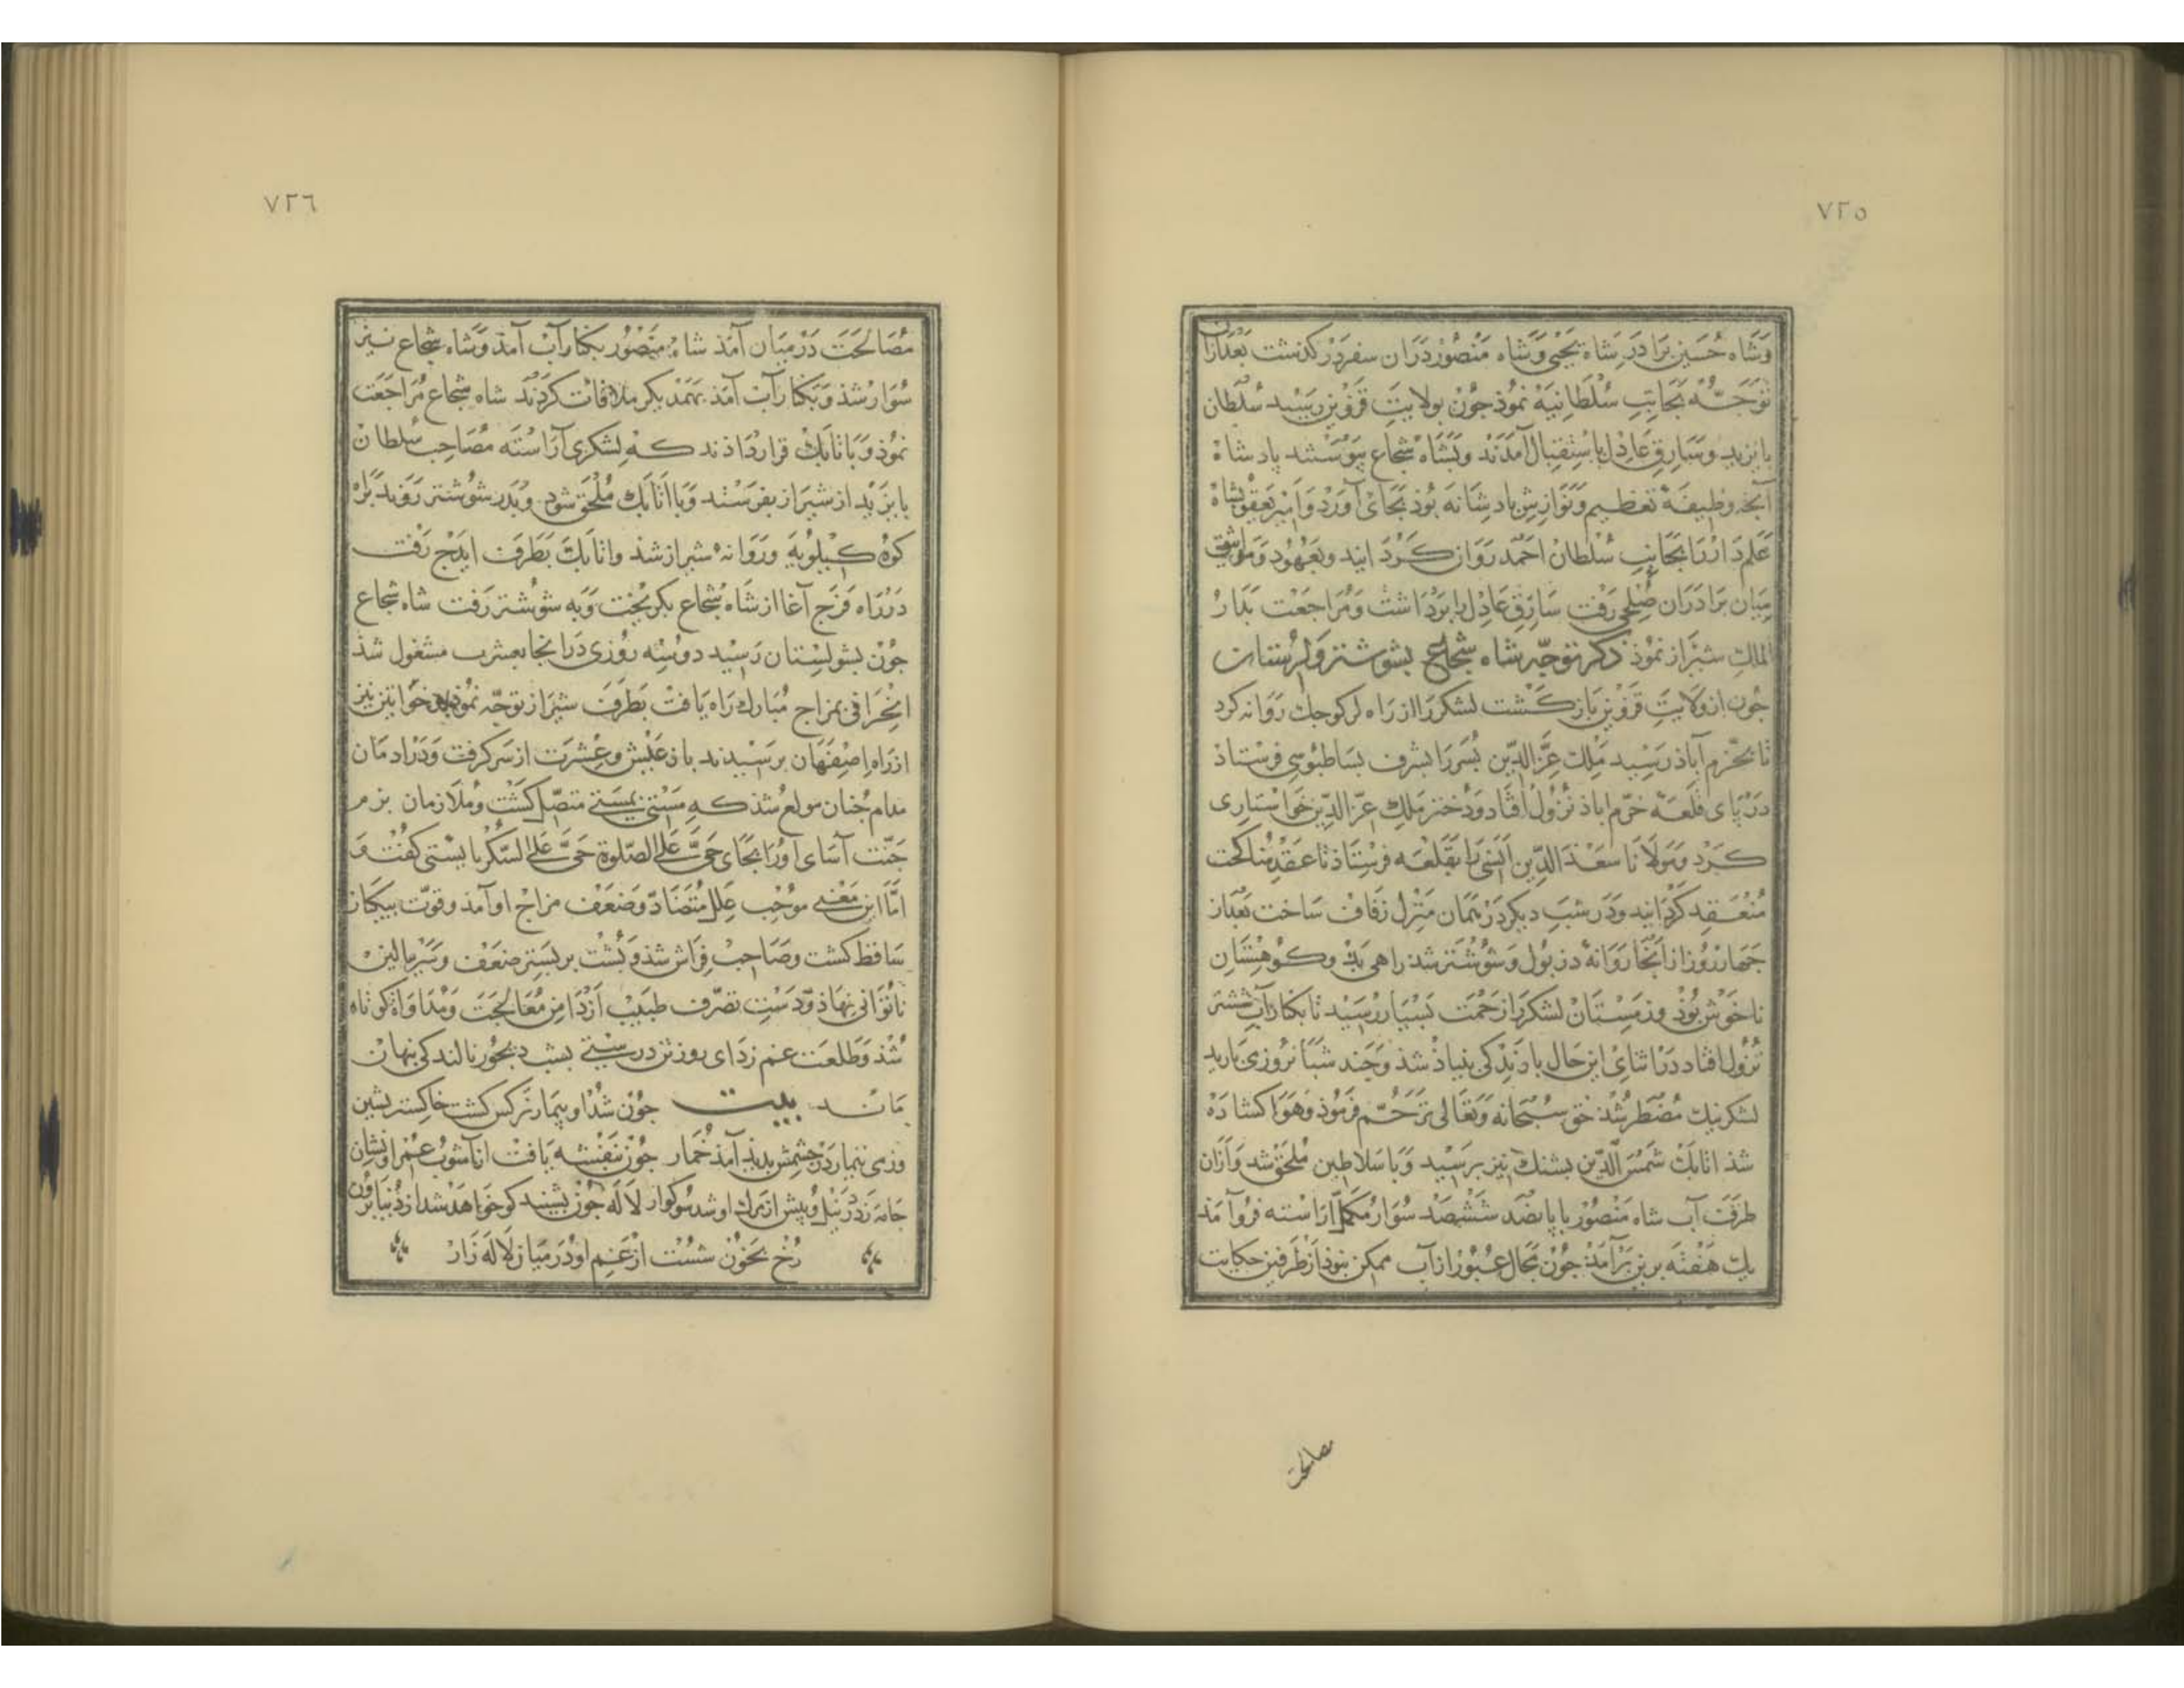 ٧٢٥
وشاه حسین برادر شاه یحیی وشاه منصور دران سفر درکذشت بعدازان
توجه بجانب سلطانیه نموذ جون بولایت قزوین رسید سلطان
بایزید وسارق عادل باستقبال آمدند وبشاه شجاع بیوستند پادشاه
آنجه وظیفۀ تعظیم ونوازش پادشاهانه بوذ بجای آورد وامیر یعقوبشاه
علمدار را بجانب سلطان احمد روان کردانید وبعهود ومواثیق
میان برادران صلحی رفت سارق عادل را برداشت ومراجعت بدار
الملك شیراز نموذ ذکر توجه شاه شجاع بشوشتر ولرستانات
جون از ولایت قزوین بازکشت لشکر را از راه لرکوجك روانه کرد
تا بخرم آباذ رسید ملك عز الدین بسر را بشرف بساطبوسی فرستاذ
در پای قلعه خرم اباذ نزول افتاد ودختر ملك عز الدین خواستاری
کرد ومولانا سعد الدین انسی را بقلعه فرستاذ تا عقد مناکحت
منعقد کردانید ودر شب دیکر در همان منزل زفاف ساخت بعداز
جهار روز از انجا روانۀ دزبول وشوشتر شد راهی بد وکوهستان
ناخوش بوذ وزمستان لشکر را زحمت بسیار رسید تا بکنار آب ششتر
نزول افتاد در اثنای این حال بارندکی بنیاذ شذ وجند شبانروزی بارید
لشکر نیك مضطر شذ حق سبحانه وتعالی ترحم فرموذ وهوا کشاده
شذ اتابك شمس الدین بشنك نیز برسید وبا سلاطین ملحق شد وازان
طرف آب شاه منصور با پانصد ششصد سوار مکمل اراسته فروآمذ
یك هفته برین برآمذ جون مجال عبور از آب ممکن نبوذ از طرفین حکایت
مصالحت
٧٢٦
مصالحت در میان آمذ شاه منصور بکنار آب آمذ وشاه شجاع نیز
سوار شذ وبکنار آب آمذ بهمدیکر ملاقات کردند شاه شجاع مراجعت
نموذ وبا اتابك قرار داذند که لشکری آراسته مصاحب سلطان
بایزید از شیراز بفرستد وبا اتابك ملحق شود وبدر شوشتر روند براه
کوه کیلویه وروانۀ شیراز شذ واتابك بطرف ایدج رفت
در راه فرج آغا از شاه شجاع بکریخت وبه شوشتر رفت شاه شجاع
جون بشولستان رسید دوسه روزی در انجا بعشرت مشغول شذ
انحرافی بمزاج مبارك راه یافت بطرف شیراز توجه نموذ وخواتین نیز
از راه اصفهان برسیدند باز عیش وعشرت از سر کرفت ودر ادمان
مدام جنان مولع شذ که مستی بمستی متصل کشت وملازمان بزم
جنت آسای اورا بجای حی علی الصلوة حی علی السکر بایستی کفت
اما این معنی موجب علل متضاد وضعف مزاج او آمد وقوت بیکبار
ساقط کشت وصاحب فراش شذ وبشت بر بستر ضعف وسر ببالین
ناتوانی نهاذ ودست تصرف طبیب از دامن معالجت ومداواة کوتاه
شذ وطلعت غم زدای روز تندرستی بشب دیجور نالندکی بنهان
ماند بیت جون شذ او بیمار نرکس کشت خاکستر نشین
وزمی بیمار در جشمش بدید آمذ خمار جون بنفشه یافت از آشوب عمر او نشان
جامه زد در نیل وپیش از مرك او شد سوکوار لاله جون بشنید کو خواهد شد از دنیا برون
رخ بخون شست از غم او در میان لاله زار